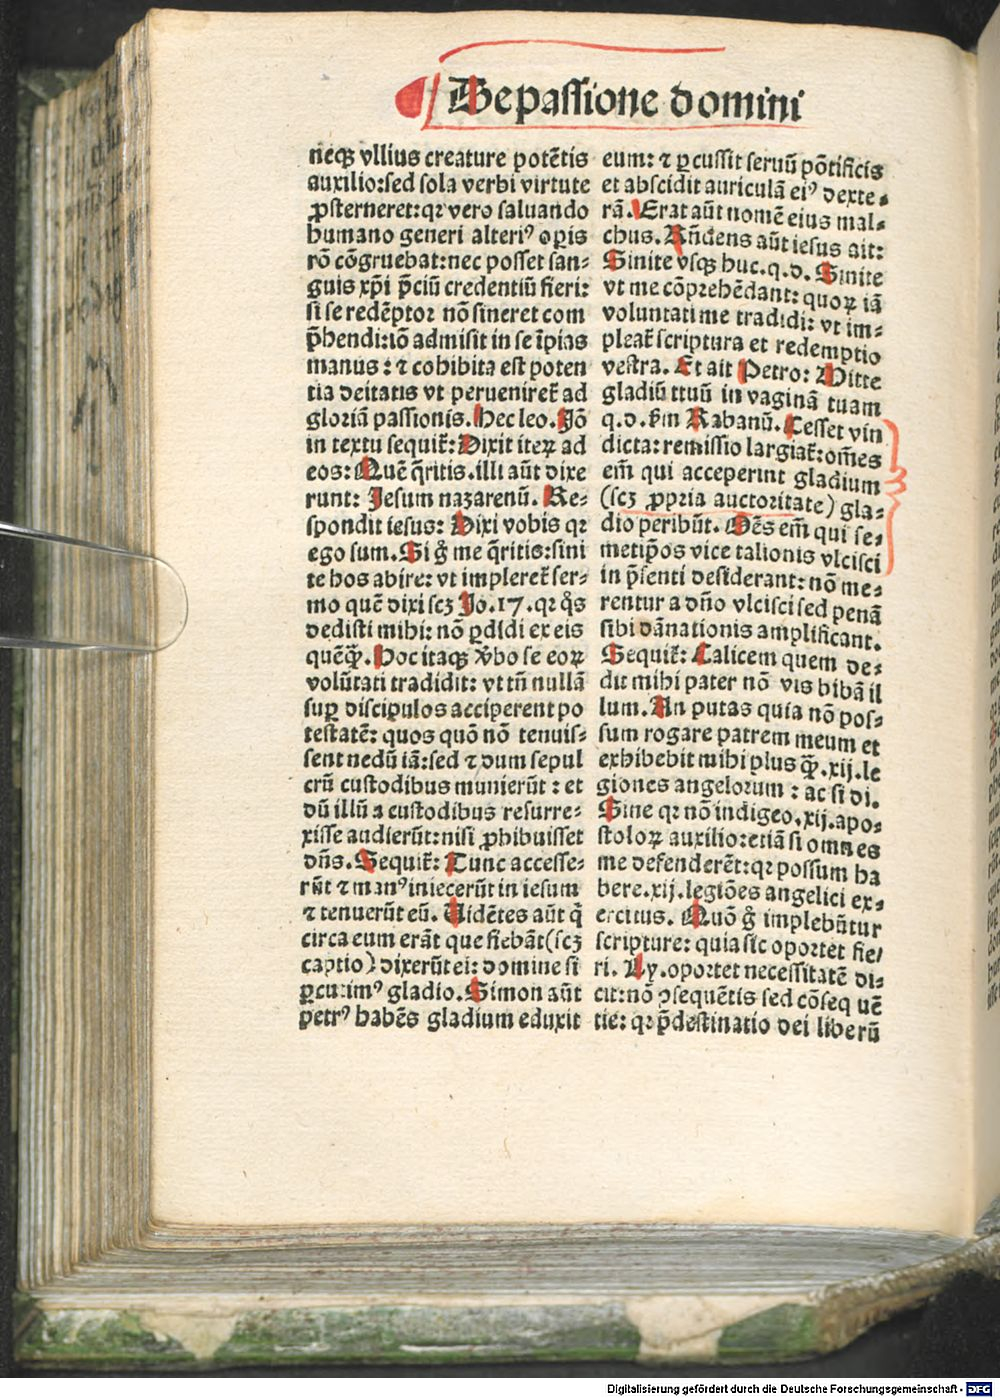 De passione domini
neqꝫ vllius creature potẽtis
auxilio: sed sola verbi virtute
ꝓsterneret: qꝛ vero saluando
humano generi alteriꝰ opis
rõ cõgruebat: nec posset san-
guis xp̃i p̃ciũ credentiũ fieri:
si se redẽptor nõ sineret com
p̃hendi: iõ admisit in se ĩpias
manus: ⁊ cohibita est poten
tia deitatis vt perueniret̃ ad
gloriã passionis. Hec leo. Jõ
in textu sequit̃: Dixit iteꝝ ad
eos: Quẽ q̃ritis. illi aũt dixe
runt: Jesum nazarenũ. Re-
spondit iesus: Dixi vobis qꝛ
ego sum. Si g̊ me q̃ritis: sini
te hos abire: vt impleret̃ ser-
mo quẽ dixi scꝫ Jo. 17. qꝛ q̊s
dedisti mihi: nõ ꝑdidi ex eis
quẽq̃ꝫ. Hoc itaqꝫ v̾bo se eoꝝ
volũtati tradidit: vt tñ nullã
suꝑ discipulos acciperent po
testatẽ: quos quõ nõ tenuis-
sent nedũ iã: sed ⁊ dum sepul
crũ custodibus munierũt: et
dũ illũ a custodibus resurre-
xisse audierũt: nisi ꝓhibuisset
dñs. Sequit̃: Tunc accesse-
rũt ⁊ manꝰ iniecerũt in iesum
⁊ tenuerũt eũ. Uidẽtes aũt q̇
circa eum erãt que fiebãt (scꝫ
captio) dixerũt ei: domine si
ꝑcutimꝰ gladio. Simon aũt
petrꝰ habẽs gladium eduxit
eum: ⁊ ꝑcussit seruũ põtificis
et abscidit auriculã eiꝰ dexte-
rã. Erat aũt nomẽ eius mal-
chus. Rñdens aũt iesus ait:
Sinite vsqꝫ huc. q. d. Sinite
vt me cõprehẽdant: quoꝝ iã
voluntati me tradidi: vt im-
pleat̃ scriptura et redemptio
vestra. Et ait Petro: Mitte
gladiũ ttuũ in vaginã tuam
q. d. ẜm Rabanũ. Cesset vin
dicta: remissio largiat̃: om̃es
em̃ qui acceperint gladium
(scꝫ ꝓpria auctoritate) gla-
dio peribũt. Oẽs em̃ qui se-
metip̃os vice talionis vlcisci
in p̃senti desiderant: nõ me-
rentur a dño vlcisci sed penã
sibi dãnationis amplificant.
Sequit̃: Calicem quem de-
dit mihi pater nõ vis bibã il
lum. An putas quia nõ pos-
sum rogare patrem meum et
exhibebit mihi plus q̃ꝫ. xij. le
giones angelorum: ac si di.
Sine qꝛ nõ indigeo. xij. apo-
stoloꝝ auxilio: etiã si omnes
me defenderẽt: qꝛ possum ha
bere. xij. legiões angelici ex-
ercitus. Quõ g̊ implebũtur
scripture: quia sic oportet fie/
ri. Ly. oportet necessitatẽ di-
cit: nõ ꝯsequẽtis sed cõseq uẽ
tie: qꝛ p̃destinatio dei liberũ
Digitalisierung gefördert durch die Deutsche Forschungsgemeinschaft - DFG